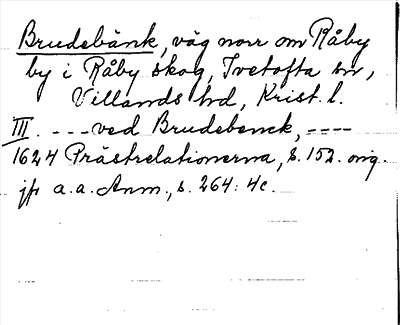 Brudebänk, väg norr om Råby
by i Råby skog, Ivetofta sn,
Villands hd, Krist. l.
III. - - - ved Brudebenck, - - - -
1624 Prästrelationerna, s. 152. orig.
jfr a.a. Anm., s. 264: 4c.